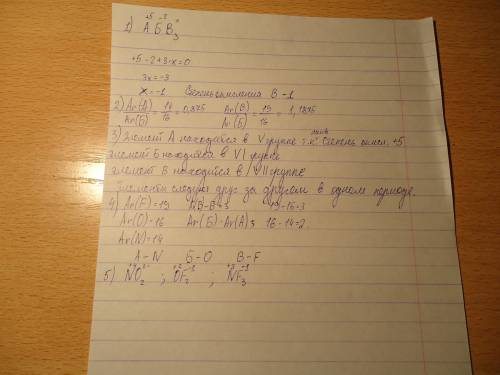 +5 -2 x
1) А Б В₃
+5-2+3·x=0
3x=-3
x=-1 Степень окисления В -1
2) Ar(А)/Ar(Б) = 14/16 = 0,875 Ar(В)/Ar(Б) = 19/16 = 1,1875
3) Элемент А находится в V группе т.к. степень окисл. +5
Элемент Б находится в VI группе
Элемент В находится в VII группе
Элементы следуют друг за другом в одном периоде.
4) Ar(F)=19 19-16=3
Ar(O)=16 Ar(Б)-Ar(А)= 16-14=2
Ar(N)=14
А-N Б-O В-F
+4 -2 +2 -1 +3 -1
5) NO₂ ; OF₂ ; NF₃